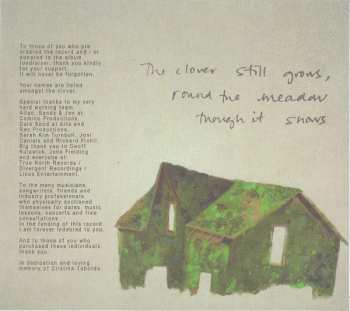 To those of you who pre
ordered the record and / or
donated to the album
fundraiser, thank you kindly
for your support.
It will never be forgotten.
Your names are listed
amongst the clover.
Special thanks to my very
hard working team.
Allan, Sandy & Jen at
Productions,
Dale and
Productions,
Sarah Kim Turnbull, José
and Richard
Big thank you to Geoff
Kulawick, John Fielding
and everyone at
True North Records /
Divergent Recordings /
Linus Entertainment.
To the many musicians
songwriters, friends and
industry professionals
who physically auctioned
themselves for dates, music
lessons, concerts and free
consultations
in the funding of this record
I am forever indebted to you.
And to those of you who
purchased these individuals
thank you.
In dedication and loving
memory of Cristina Taborda
The clover still grows,
round the meadow
though it snows